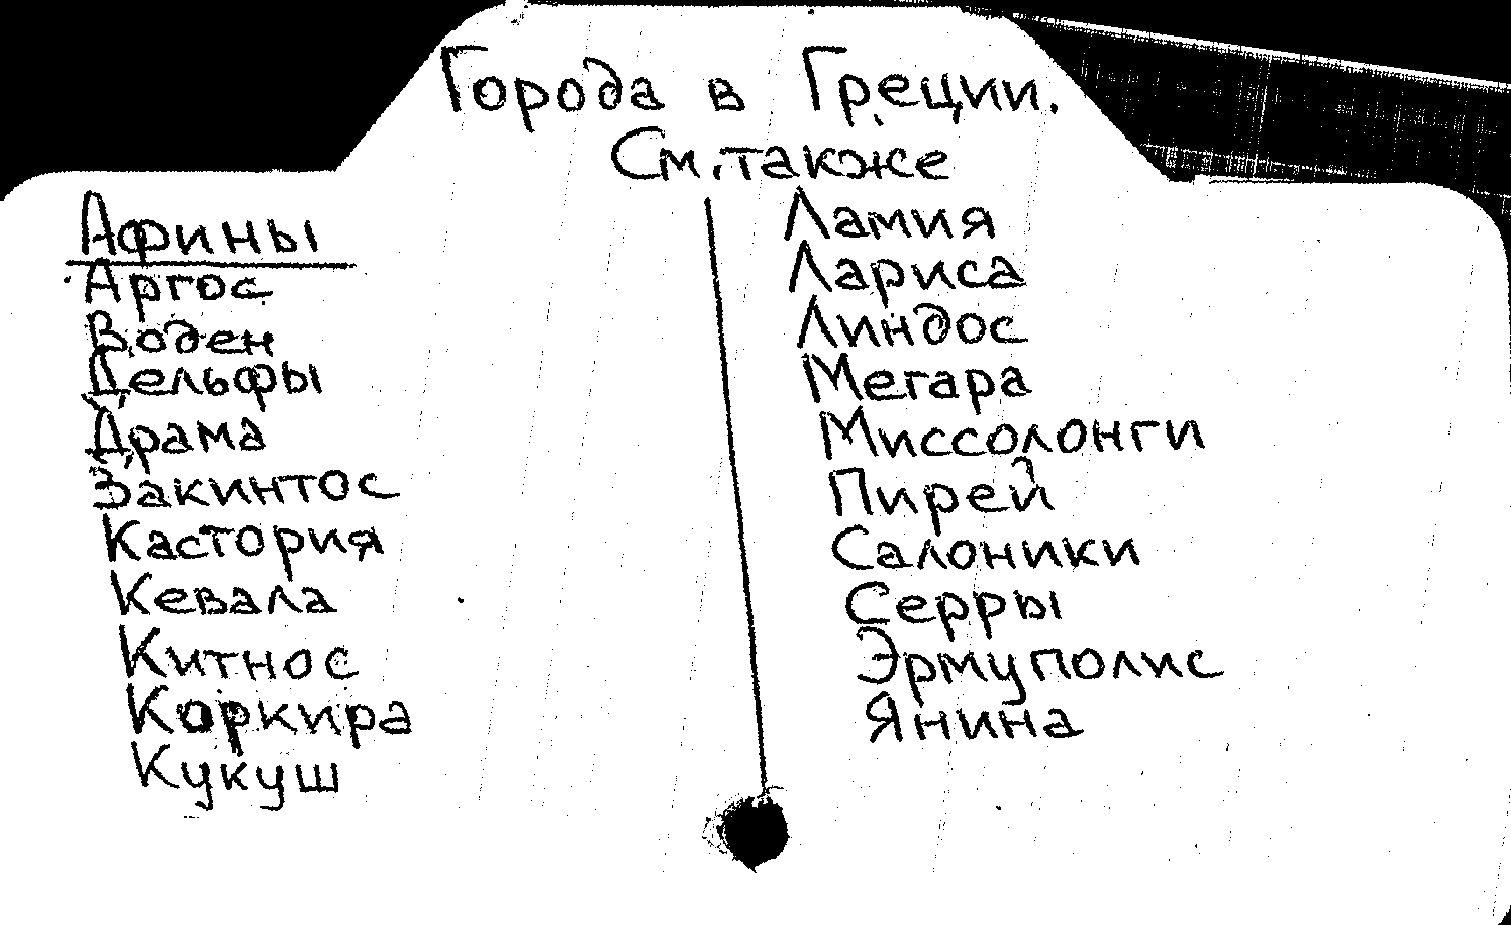 Города в Греции.
См. также
Афины
Аргос
Воден
Дельфы
Драма
Закинтос
Кастория
Кевала
Китнос
Коркира
Кукуш
Ламия
Лариса
Линдос
Мегара
Миссолонги
Пирей
Салоники
Серры
Эрмуполис
Янина